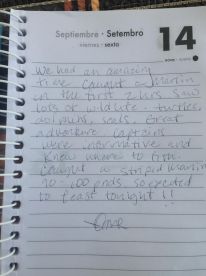 Septiembre - Setembro
viernes - sexta
14
We had an amazing
time caught a Marlin
in the first 2 hrs. Saw
lots of wildlife - turtles,
dolphins, seals. Great
adventure. Captains
were informative and
knew where to go.
Caught a striped Marlin
90-100 pnds. So excited
to feast tonight!!